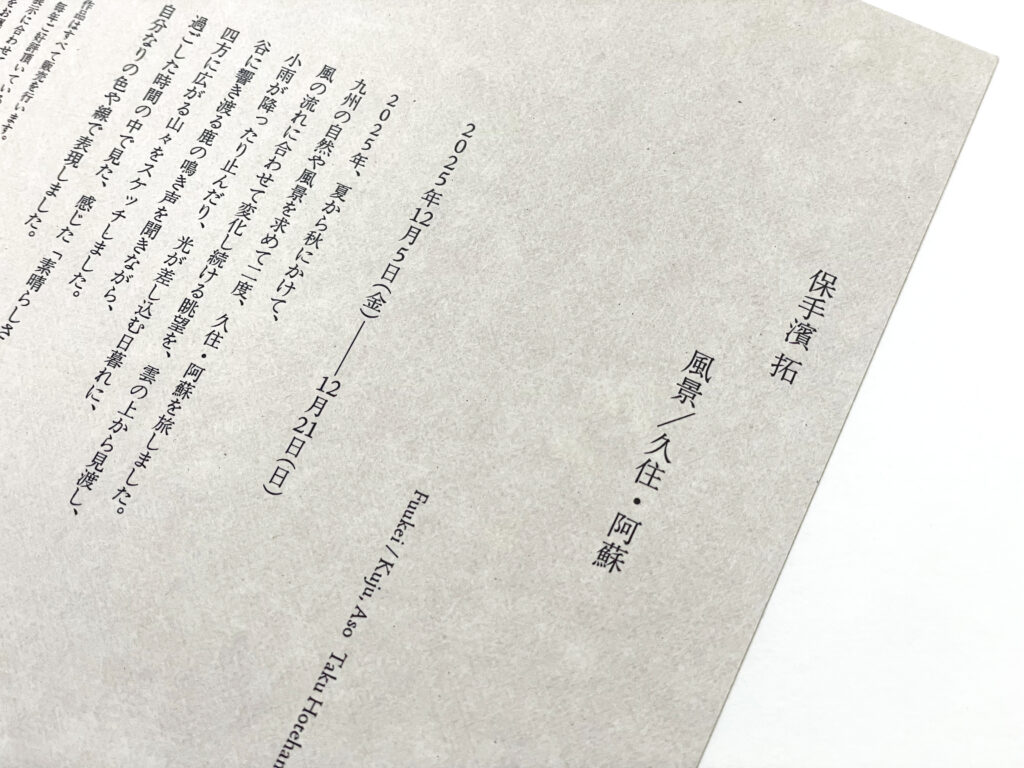 保手濱 拓
風景／久住・阿蘇
Fuukei / Kuju, Aso Taku Hotehan
2025年12月5日(金)――12月21日(日)
2025年、夏から秋にかけて、
九州の自然や風景を求めて二度、久住・阿蘇を旅しました。
風の流れに合わせて変化し続ける眺望を、雲の上から見渡し、
小雨が降ったり止んだり、光が差し込む日暮れに、
谷に響き渡る鹿の鳴き声を聞きながら、
四方に広がる山々をスケッチしました。
過ごした時間の中で見た、感じた「素晴らしさ
自分なりの色や線で表現しました。
作品はすべて販売を行います。
毎年ご好評頂いている
展示に合わせ